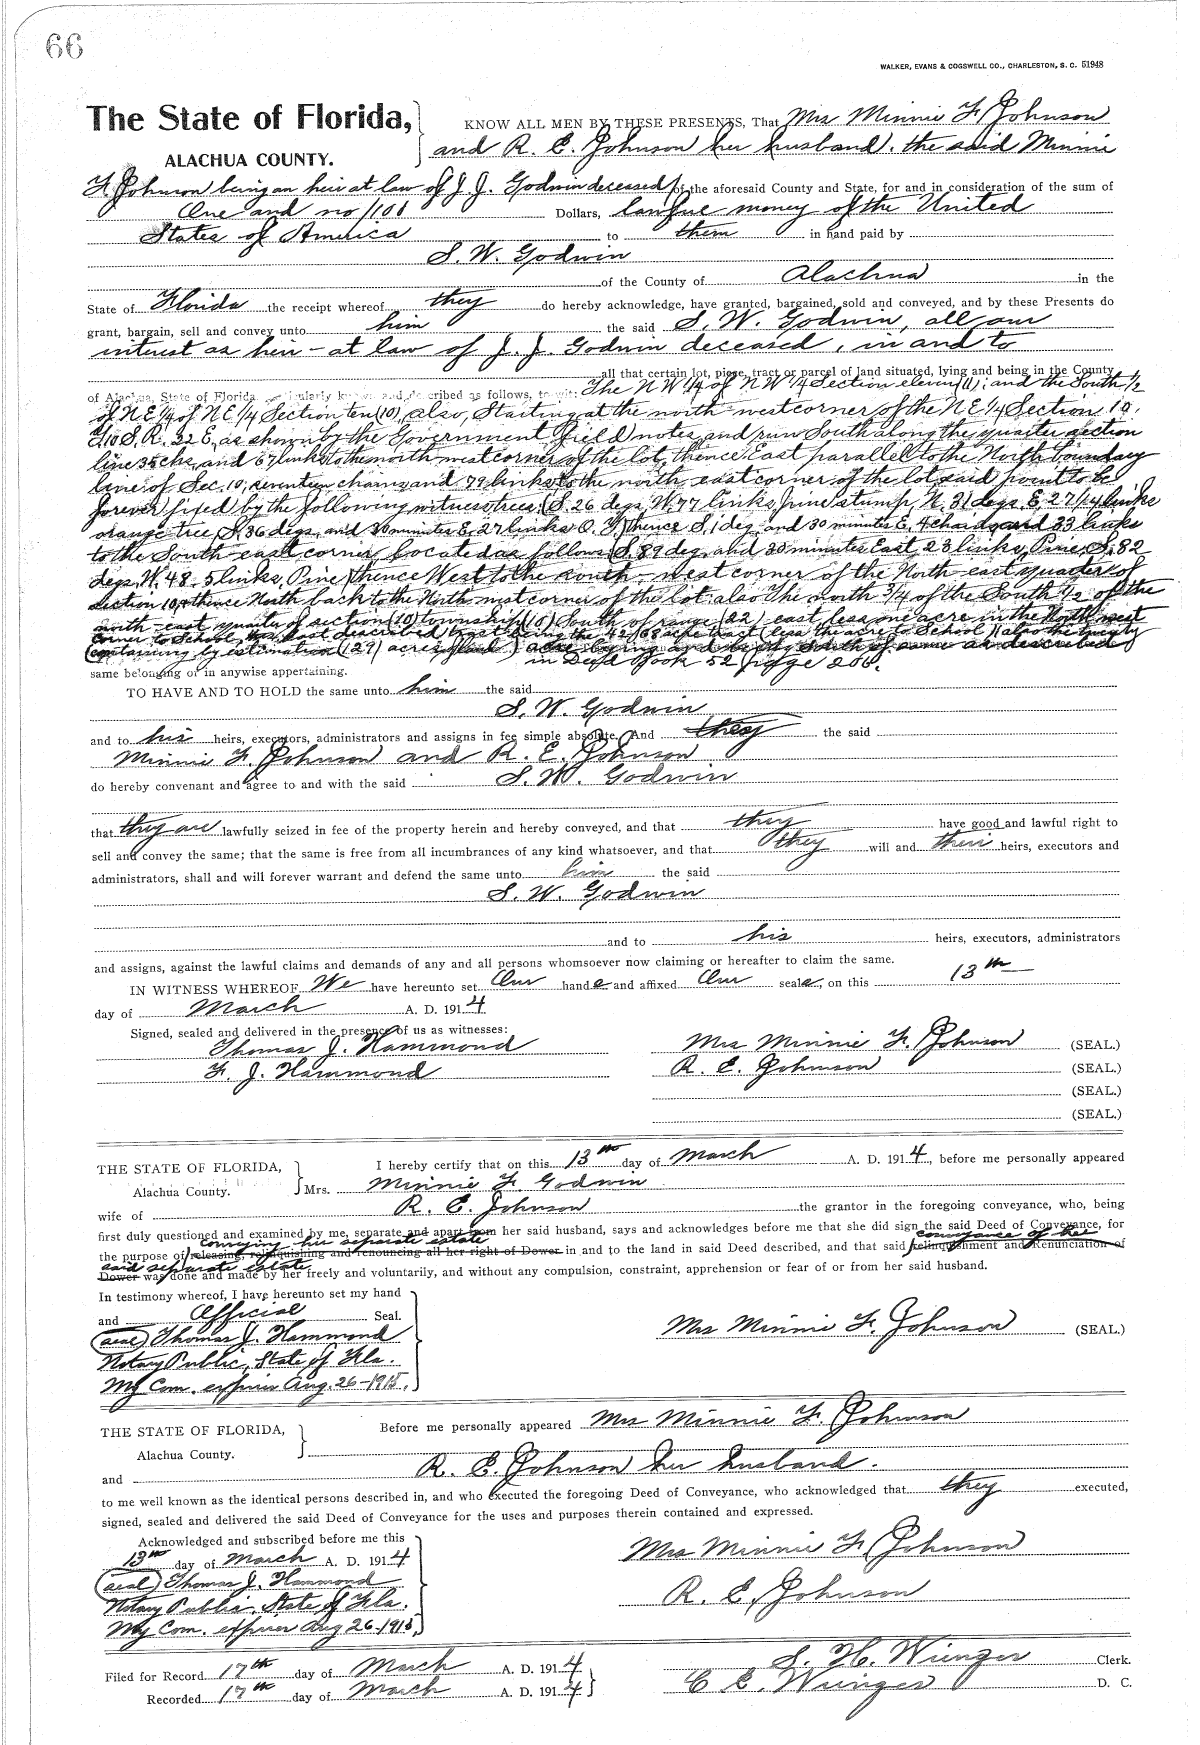 66
WALKER, EVANS & COGSWELL CO., CHARLESTON, S. C. 51948
The State of Florida,
ALACHUA COUNTY.
KNOW ALL MEN BY THESE PRESENTS, That Mrs Minnie F. Johnson
and R. E. Johnson her husband, the said Minnie
F. Johnson being an heir at law of J. J. Godwin deceased, of the aforesaid County and State, for and in consideration of the sum of
One and no/100 Dollars, lawful money of the United
States of America to them in hand paid by
S. W. Godwin
of the County of Alachua in the
State of Florida the receipt whereof they do hereby acknowledge, have granted, bargained, sold and conveyed, and by these Presents do
grant, bargain, sell and convey unto him the said S. W. Godwin, all our
interest as heir-at law of J. J. Godwin deceased, in and to
all that certain lot, piece, tract or parcel of land situated, lying and being in the County
of Alachua, State of Florida described as follows, to wit: The NW 1/4 of NW 1/4 Section eleven (11); and the South 1/2
of NE 1/4 of NE 1/4 Section ten (10), also, Starting at the north west corner of the NE 1/4 Section 10.
T10 S. R. 22 E, as shown by the Government field notes, and run South along the quarter section
line 35 chs, and 67 links to the north west corner of the lot, thence East parallel to the North boundary
line of Sec. 10, seventeen chains and 79 links to the north east corner of the lot, said point to be
forever fixed by the following witness trees, (S. 26 degs, W. 77 links, Pine stump, N. 31 degs. E. 27 1/4 links
orange tree, S. 36 degs, and 30 minutes E, 27 links thence S. 1 deg. and 30 minutes E, 4 chs and 33 links
to the South east corner, located as follows (S. 89 deg. and 30 minutes East, 23 links, Pine, S. 82
degs, W. 48.5 links, Pine) thence West to the south-west corner of the North-east quarter of
section 10, thence North back to the North west corner of the lot: also The north 3/4 of the South 1/2 of the
north-east quarter of section (10) township (10) South of range (22) east, less one acre in the North west
corner to School, last described tract being the acre tract (less the acre to School) (also the twenty
(containing by estimation (129) acres acre lying and South of same as described
in Deed Book 52 page 206.
same belonging or in anywise appertaining.
TO HAVE AND TO HOLD the same unto him the said
S. W. Godwin
and to his heirs, executors, administrators and assigns in fee simple absolute. And they the said
Minnie F. Johnson and R. E. Johnson
do hereby convenant and agree to and with the said S. W. Godwin
that they are lawfully seized in fee of the property herein and hereby conveyed, and that they have good and lawful right to
sell and convey the same; that the same is free from all incumbrances of any kind whatsoever, and that they will and their heirs, executors and
administrators, shall and will forever warrant and defend the same unto him the said
S. W. Godwin
and to his heirs, executors, administrators
and assigns, against the lawful claims and demands of any and all persons whomsoever now claiming or hereafter to claim the same.
IN WITNESS WHEREOF We have hereunto set Our hands and affixed Our seals, on this 13th
day of March A. D. 1914
Signed, sealed and delivered in the presence of us as witnesses:
Thomas J. Hammond
F. J. Hammond
Mrs Minnie F. Johnson (SEAL.)
R. E. Johnson (SEAL.)
(SEAL.)
(SEAL.)
THE STATE OF FLORIDA,
Alachua County.
I hereby certify that on this 13th day of March A. D. 1914, before me personally appeared
Mrs. Minnie F. Godwin
wife of R. E. Johnson the grantor in the foregoing conveyance, who, being
first duly questioned and examined by me, separate and apart from her said husband, says and acknowledges before me that she did sign the said Deed of Conveyance, for
conveying her separate estate conveyance of her
the purpose of releasing, relinquishing and renouncing all her right of Dower in and to the land in said Deed described, and that said relinquishment and Renunciation of
said separate estate
Dower was done and made by her freely and voluntarily, and without any compulsion, constraint, apprehension or fear of or from her said husband.
In testimony whereof, I have hereunto set my hand
and Official Seal.
(seal) Thomas J. Hammond
Notary Public, State of Fla.
My Com. expires Aug. 26-1915.
Mrs Minnie F. Johnson (SEAL.)
THE STATE OF FLORIDA,
Alachua County.
Before me personally appeared Mrs Minnie F. Johnson
and R. E. Johnson her husband.
to me well known as the identical persons described in, and who executed the foregoing Deed of Conveyance, who acknowledged that they executed,
signed, sealed and delivered the said Deed of Conveyance for the uses and purposes therein contained and expressed.
Acknowledged and subscribed before me this
13th day of March A. D. 1914
(seal) Thomas J. Hammond
Notary Public. State of Fla.
My Com. expires Aug 26-1915.
Mrs Minnie F. Johnson
R. E. Johnson
Filed for Record 17th day of March A. D. 1914
Recorded 17th day of March A. D. 1914
S. H. Wienges Clerk.
C E. Wienges D. C.